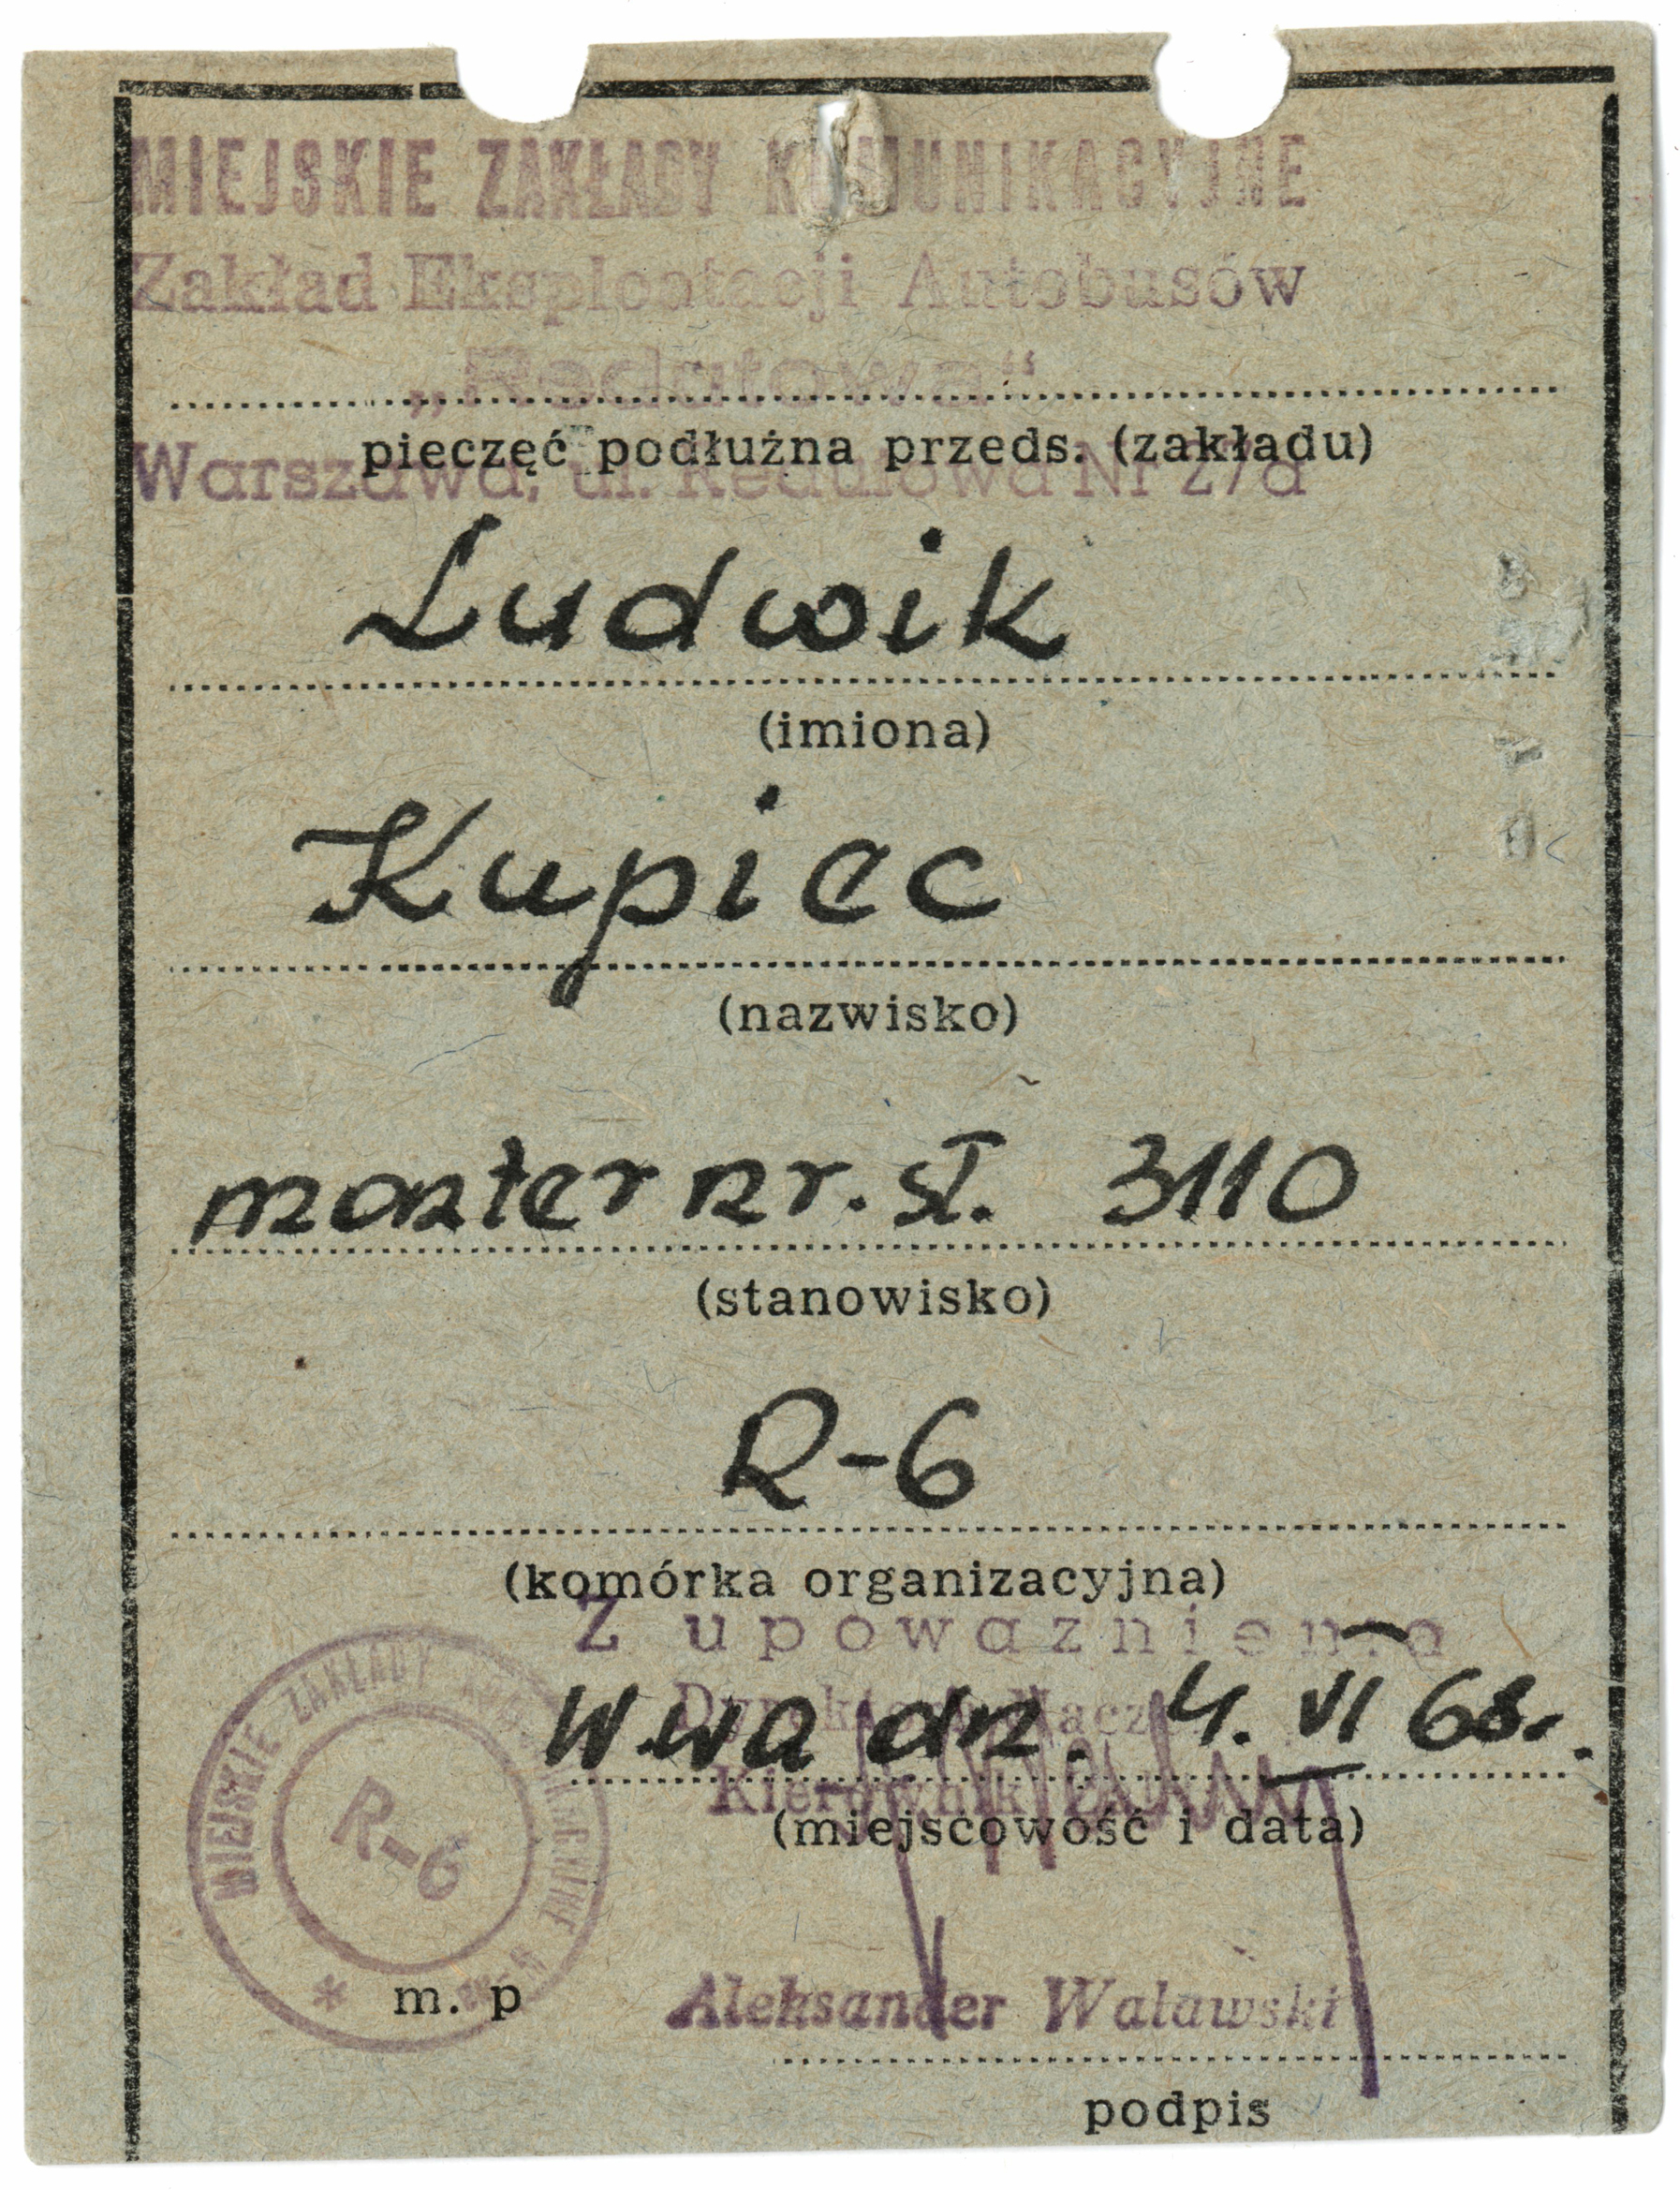 MIEJSKIE ZAKŁADY KOMUNIKACYJNE
Zakład Eksploatacji Autobusów
„Redutowa“
pieczęć podłużna przeds. (zakładu)
Warszawa, ul. Redutowa Nr 27/a
Ludwik
(imiona)
Kupiec
(nazwisko)
monter nr. sł. 3110
(stanowisko)
R-6
(komórka organizacyjna)
Z upoważnienia
Dyrektora Nacz
W-wa dn. 4. VI 68r.
Kierownik
(miejscowość i data)
MIEJSKIE ZAKŁADY
R-6
m. p
Aleksander Walawski
podpis